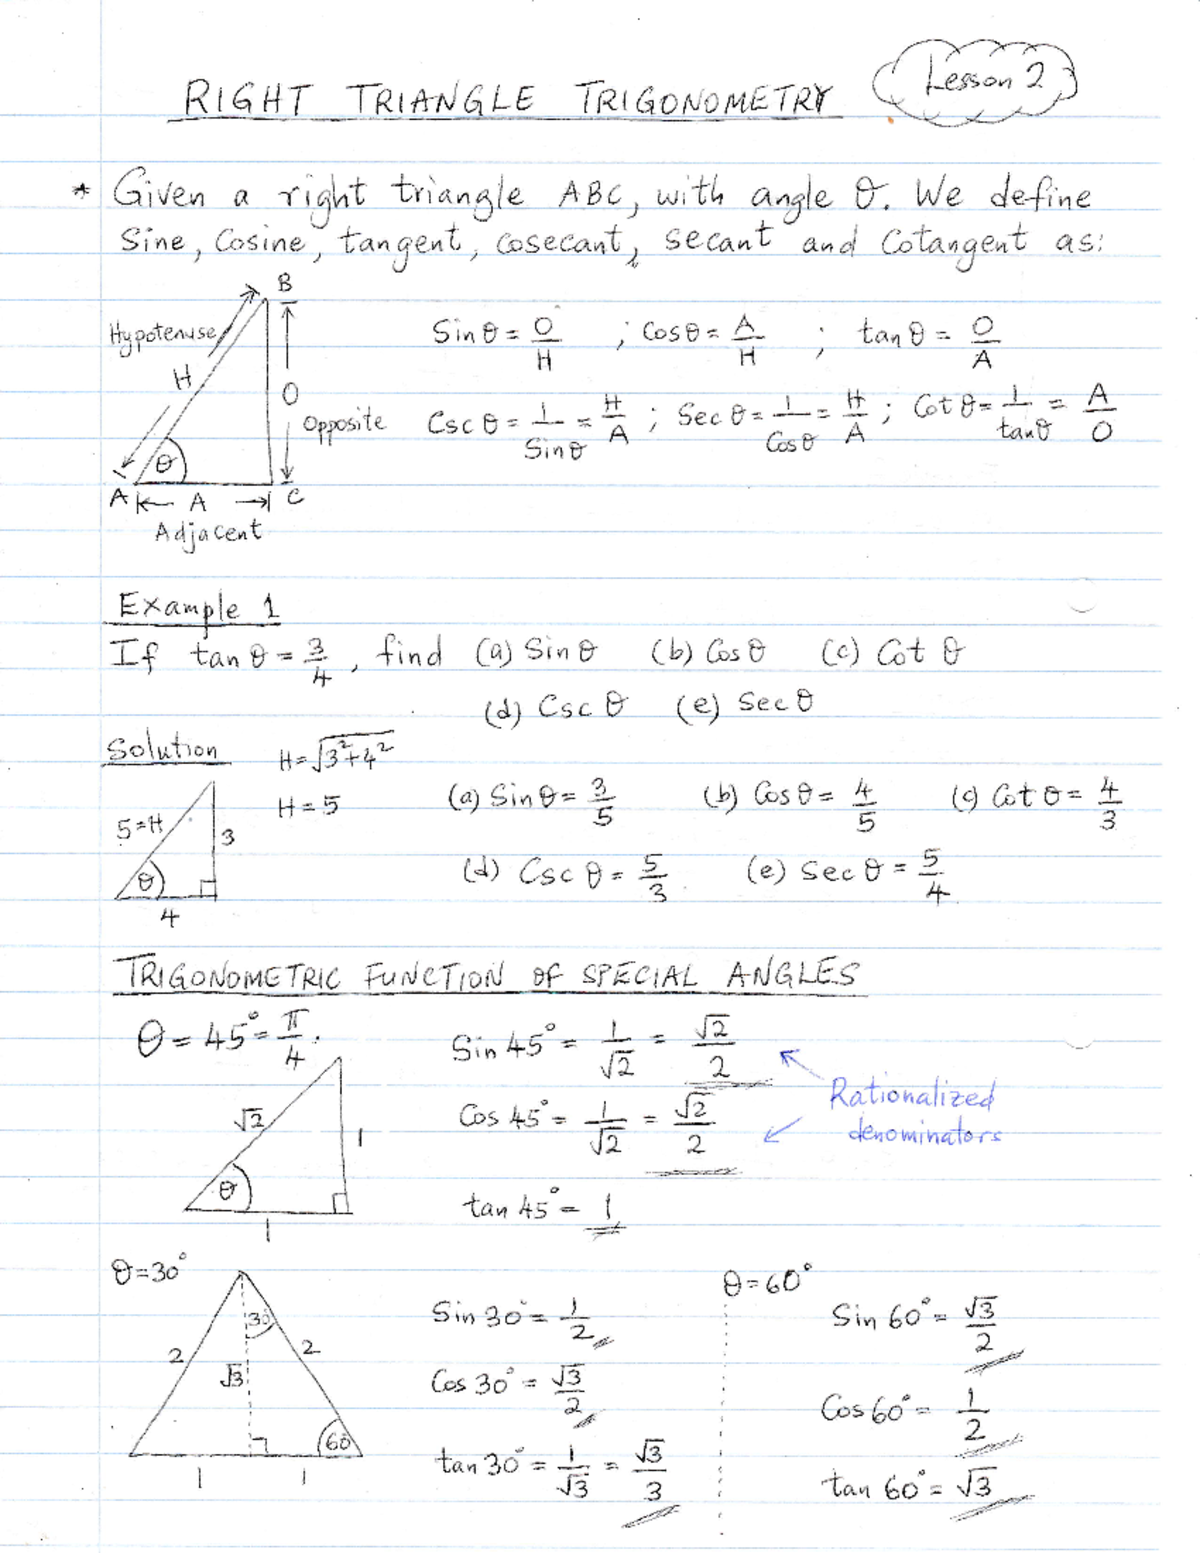 RIGHT TRIANGLE TRIGONOMETRY Lesson 2
* Given a right triangle ABC, with angle θ. We define
Sine, Cosine, tangent, cosecant, secant and Cotangent as:
B
Hypotenuse
H
O
Opposite
θ
A A C
Adjacent
Sin θ = O/H ; Cos θ = A/H ; tan θ = O/A
Csc θ = 1/Sin θ = H/A ; Sec θ = 1/Cos θ = H/A ; Cot θ = 1/tan θ = A/O
Example 1
If tan θ = 3/4, find (a) Sin θ (b) Cos θ (c) Cot θ
(d) Csc θ (e) Sec θ
Solution H = √(3²+4²)
H = 5
5=H
3
θ
4
(a) Sin θ = 3/5 (b) Cos θ = 4/5 (c) Cot θ = 4/3
(d) Csc θ = 5/3 (e) Sec θ = 5/4
TRIGONOMETRIC FUNCTION OF SPECIAL ANGLES
θ = 45° = π/4.
√2
1
θ
1
Sin 45° = 1/√2 = √2/2
Rationalized
denominators
Cos 45° = 1/√2 = √2/2
tan 45° = 1
θ=30°
30
2
2
√3
60
1
1
Sin 30° = 1/2
Cos 30° = √3/2
tan 30° = 1/√3 = √3/3
θ=60°
Sin 60° = √3/2
Cos 60° = 1/2
tan 60° = √3